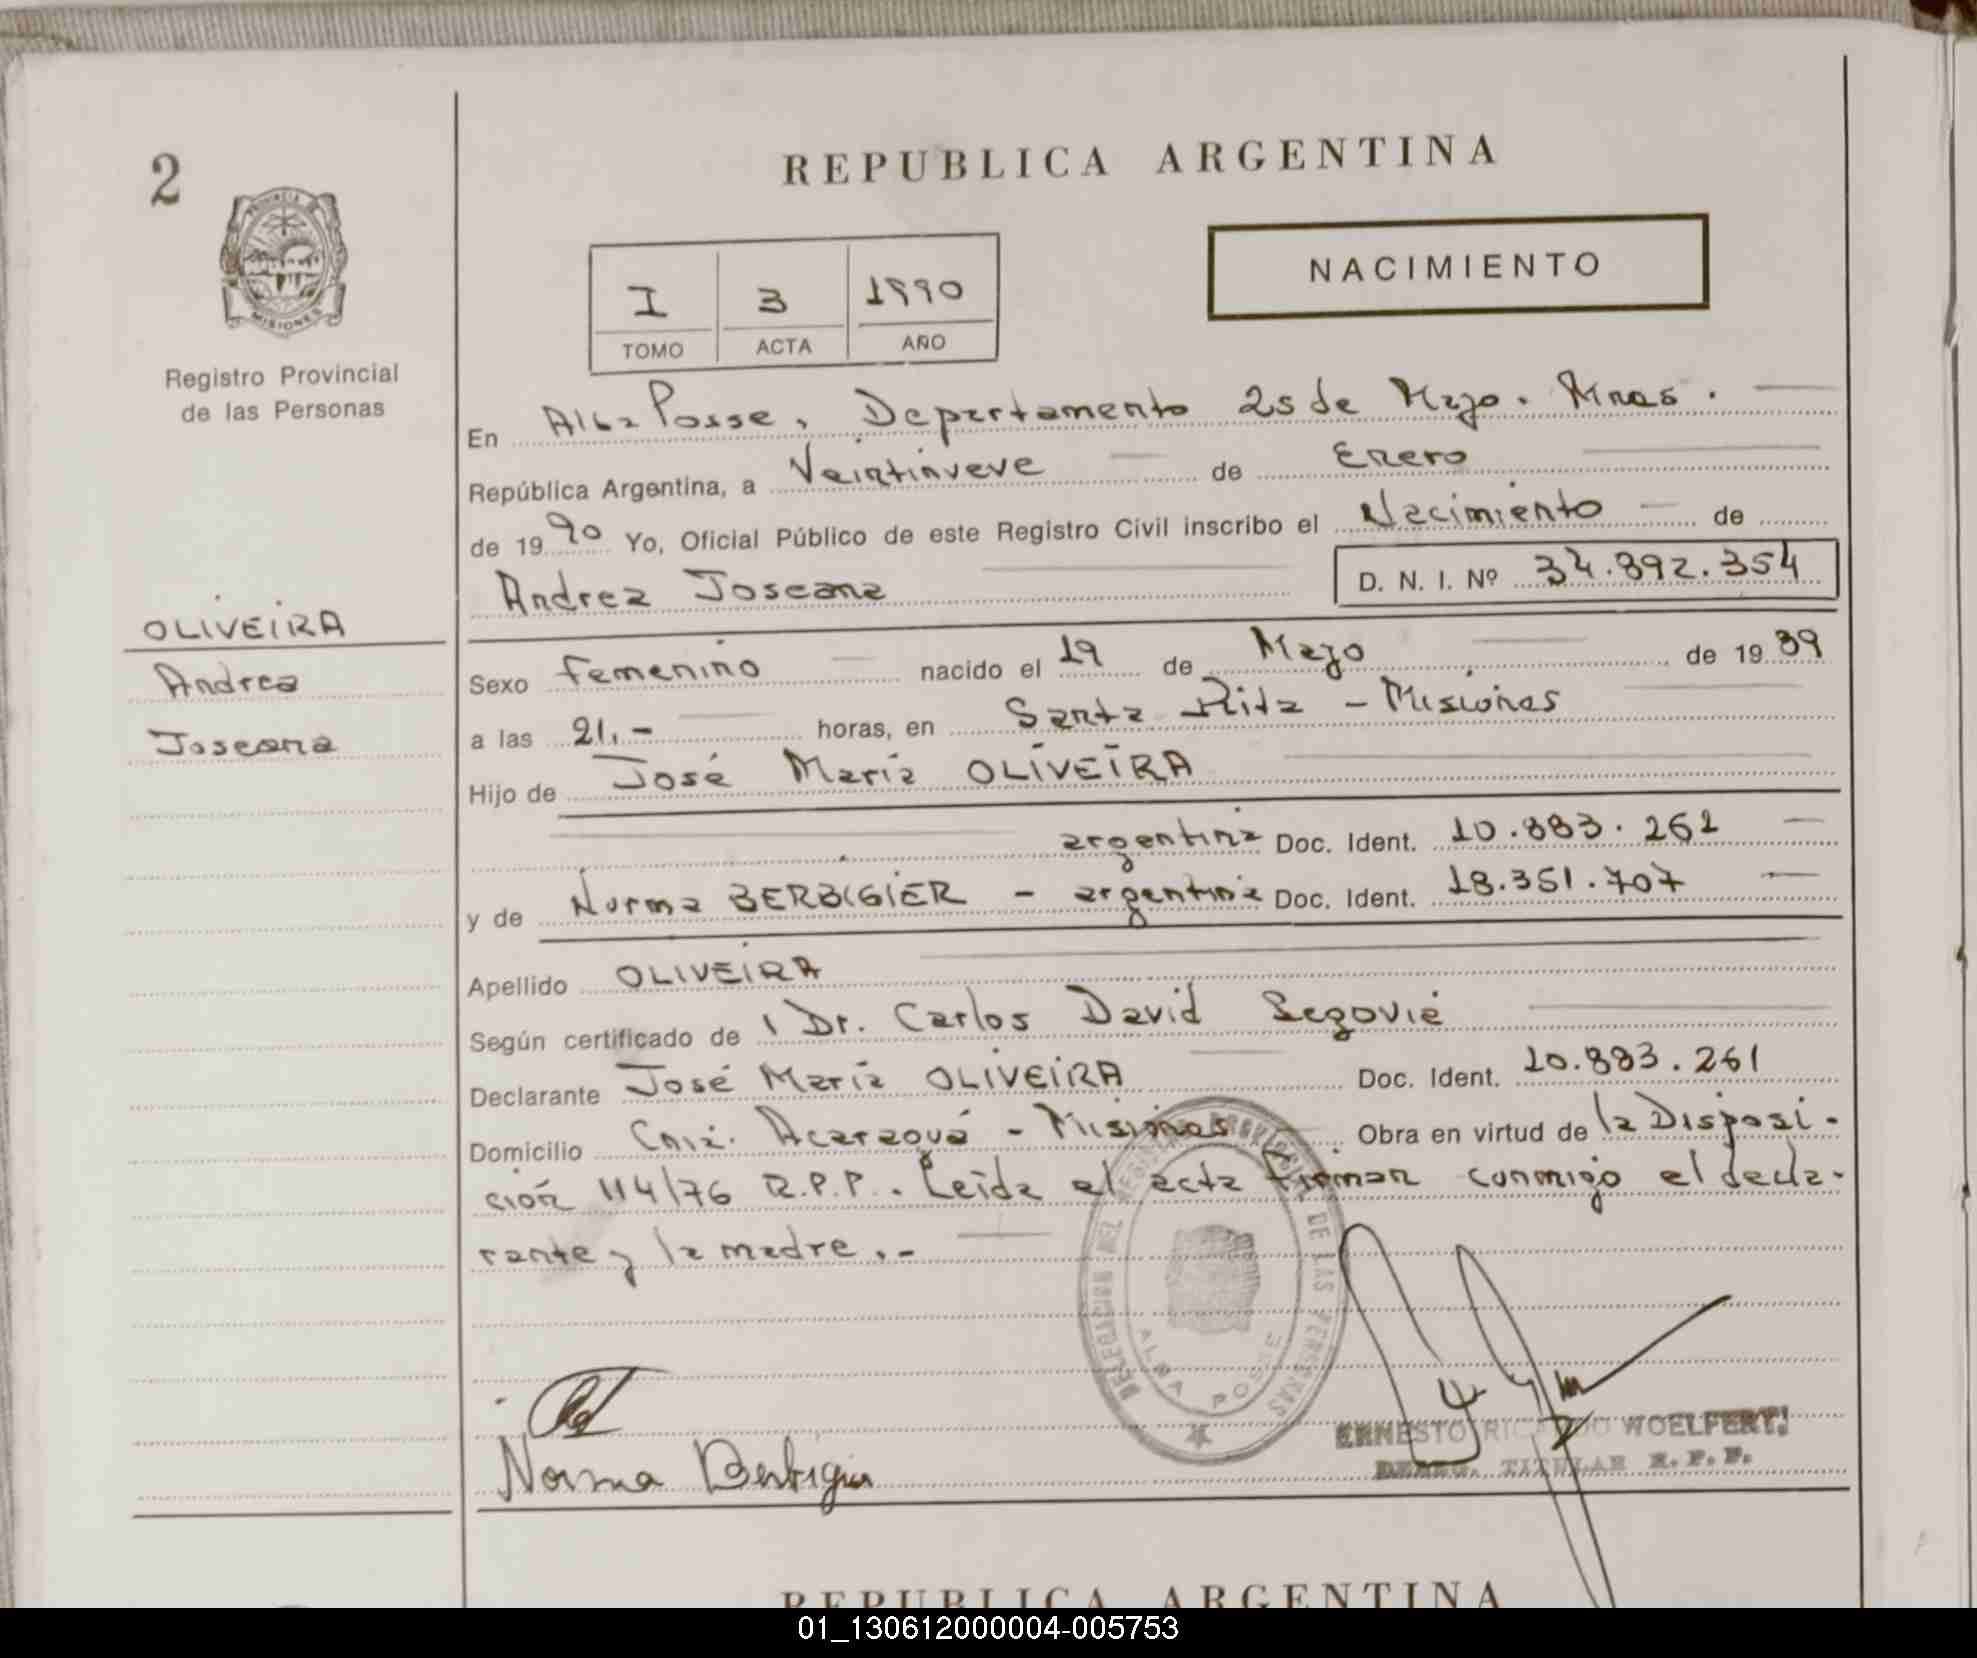 2
REPUBLICA ARGENTINA
PROVINCIA DE
MISIONES
NACIMIENTO
I 3 1990
TOMO ACTA AÑO
Registro Provincial
de las Personas
En Alba Posse, Departamento 25 de Mayo. Mnes.
República Argentina, a Veintinueve de Enero
de 1990 Yo, Oficial Público de este Registro Civil inscribo el Nacimiento de
Andrea Joseana D. N. I. Nº 34.892.354
OLIVEIRA
Andrea
Joseana
Sexo femenino nacido el 19 de Mayo de 1989
a las 21.- horas, en Santa Rita - Misiones
Hijo de José María OLIVEIRA
argentina Doc. Ident. 10.883.261
y de Norma BERBIGIER - argentina Doc. Ident. 18.351.707
Apellido OLIVEIRA
Según certificado de Dr. Carlos David Segovia
Declarante José María OLIVEIRA Doc. Ident. 10.883.261
Domicilio Cnia. Acaraguá - Misiones Obra en virtud de la Disposi-
ción 114/76 R.P.P. Leida el acta firman conmigo el decla-
rante y la madre.-
DELEGACION DEL REGISTRO PROVINCIAL DE LAS PERSONAS
ALBA POSSE
Norma Berbigier
ERNESTO RICARDO WOELFERT
DELEG. TITULAR R. P. P.
REPUBLICA ARGENTINA
01_130612000004-005753